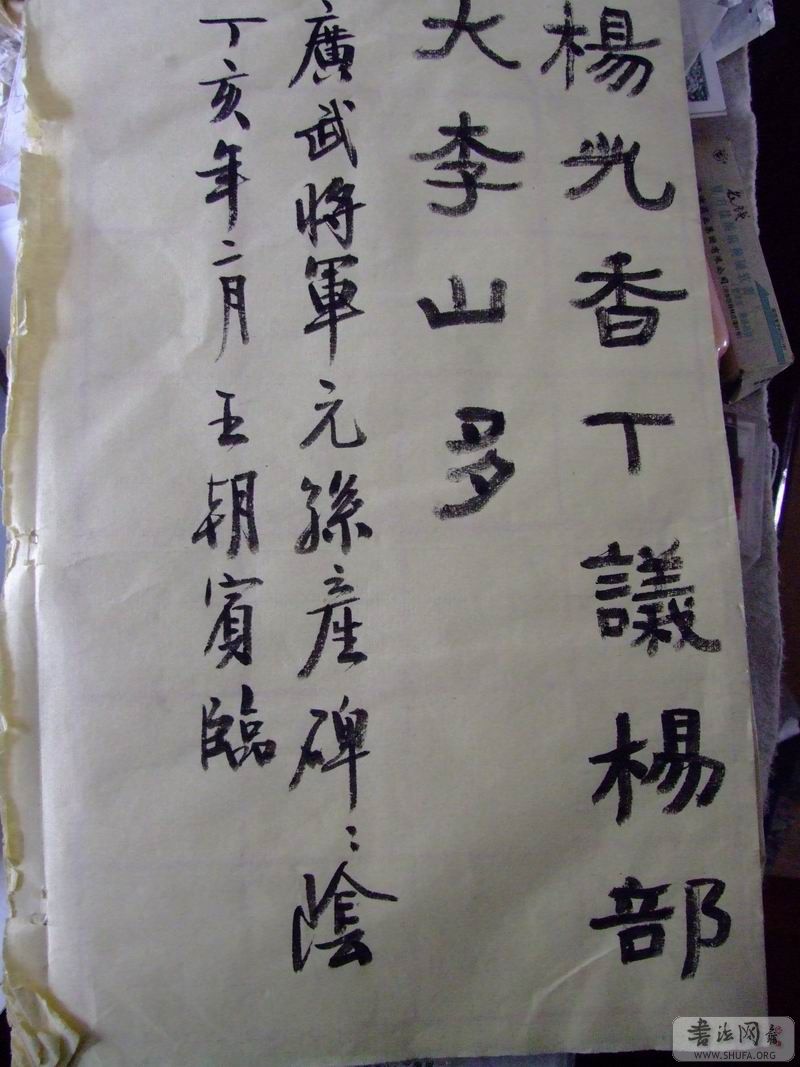 楊光香丁議楊部
大李山多
廣武將軍元孫產碑〻陰
丁亥年二月王朝賓臨
書法网
WWW.SHUFA.ORG